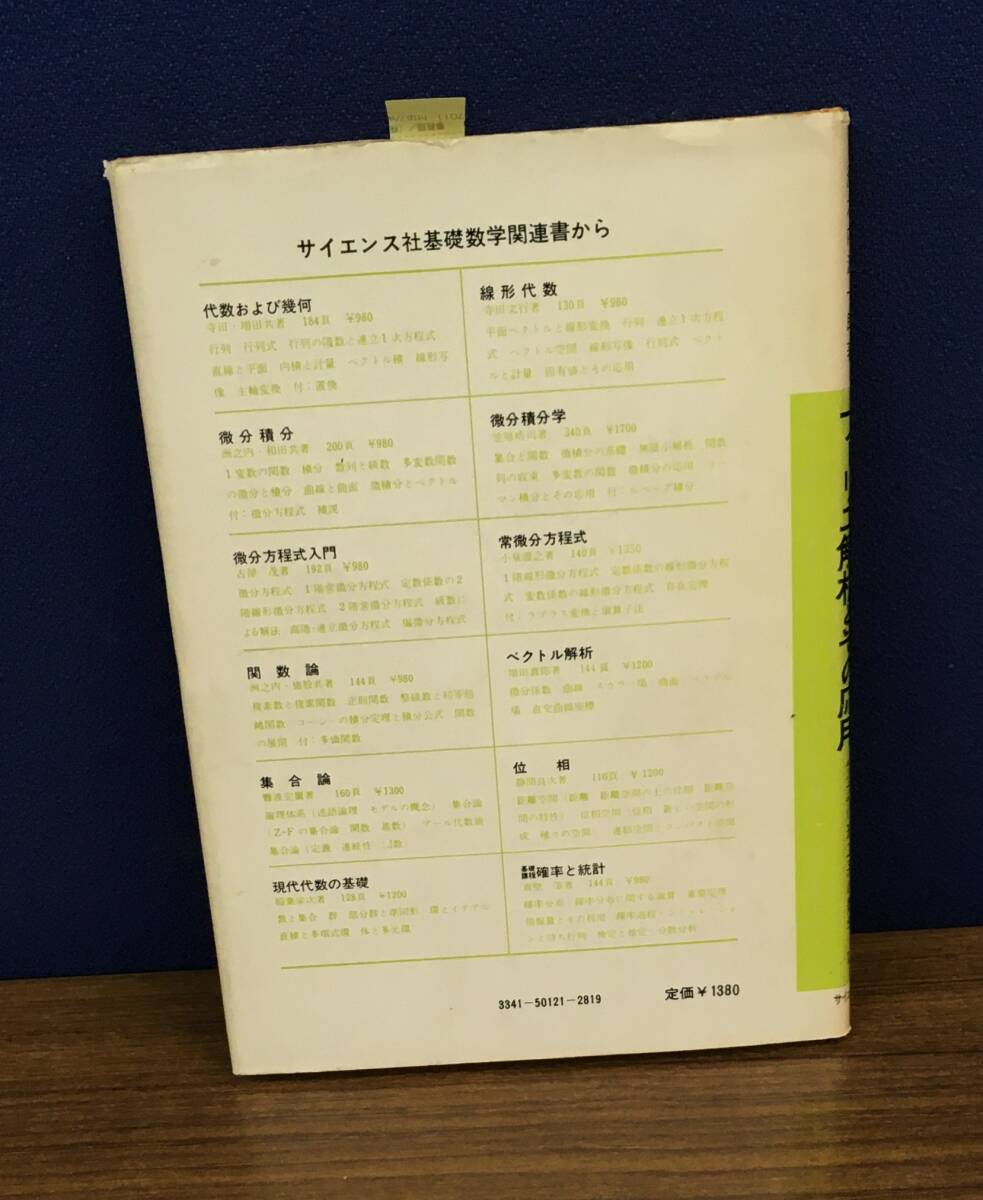 サイエンス社基礎数学関連書から
代数および幾何
寺田・増田共著 184頁 ¥980
行列 行列式 行列の階数と連立1次方程式
直線と平面 内積と計量 ベクトル積 線形写
像 主軸変換 付:置換
線形代数
寺田文行著 130頁 ¥980
平面ベクトルと線形変換 行列 連立1次方程
式 ベクトル空間 線形写像 行列式 ベクト
ルと計量 固有値とその応用
微分積分
洲之内・和田共著 200頁 ¥980
1変数の関数 積分 数列と級数 多変数関数
の微分と積分 曲線と曲面 微積分とベクトル
付:微分方程式 補説
微分積分学
笠原晧司著 340頁 ¥1700
集合と関数 微積分の基礎 無限小解析 関数
列の収束 多変数の関数 微積分の応用 リー
マン積分とその応用 付:ルベーグ積分
微分方程式入門
古屋 茂著 192頁 ¥980
微分方程式 1階常微分方程式 定数係数の2
階線形微分方程式 2階常微分方程式 級数に
よる解法 高階・連立微分方程式 偏微分方程式
常微分方程式
140頁 ¥1350
1階線形微分方程式 定数係数の線形微分方程
式 変数係数の線形微分方程式 存在定理
付:ラプラス変換と演算子法
関数論
144頁 ¥980
複素数と複素関数 正則関数 整級数と初等超
越関数 コーシーの積分定理と積分公式 関数
の展開 付:多価関数
ベクトル解析
増田真郎著 144頁 ¥1200
微分係数 曲線 スカラー場 曲面 ベクトル
場 直交曲線座標
集合論
難波完爾著 160頁 ¥1300
論理体系(述語論理 モデルの概念) 集合論
(Z-Fの集合論 関数 基数) ブール代数値
集合論
位相
静間良次著 116頁 ¥1200
距離空間(距離 距離空間の上の位相 距離空
間の特性) 位相空間(位相 新しい空間の形
成 種々の空間) 連結空間とコンパクト空間
現代代数の基礎
稲葉栄次著 128頁 ¥1200
数と集合 群 部分群と準同形 環とイデアル
直積と多項式環 体と多元環
基礎課程確率と統計
144頁 ¥980
確率分布 確率分布に関する演算 重要定理
情報量とその利用 確率過程・シミュレーショ
ンと待ち行列 検定と推定・分散分析
3341-50121-2819 定価¥1380
フーリエ解析とその応用